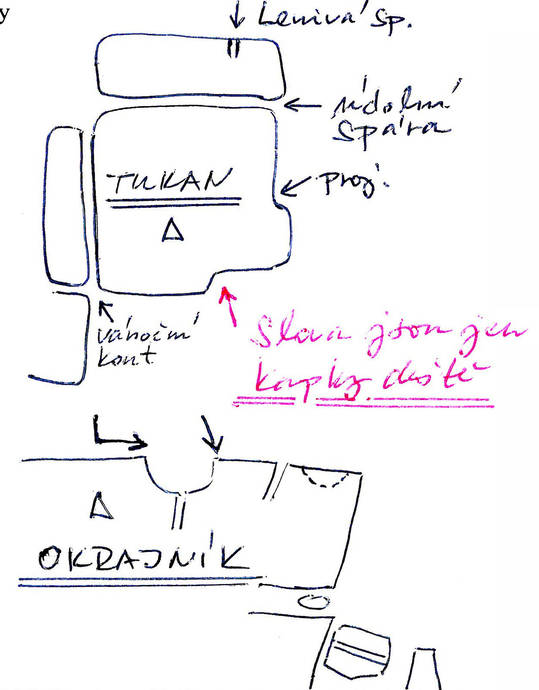 y
Lenivá sp.
údolní
spára
TUKAN
proj.
vánoční
kout
Slova jsou jen
kapky deště
OKRAJNÍK